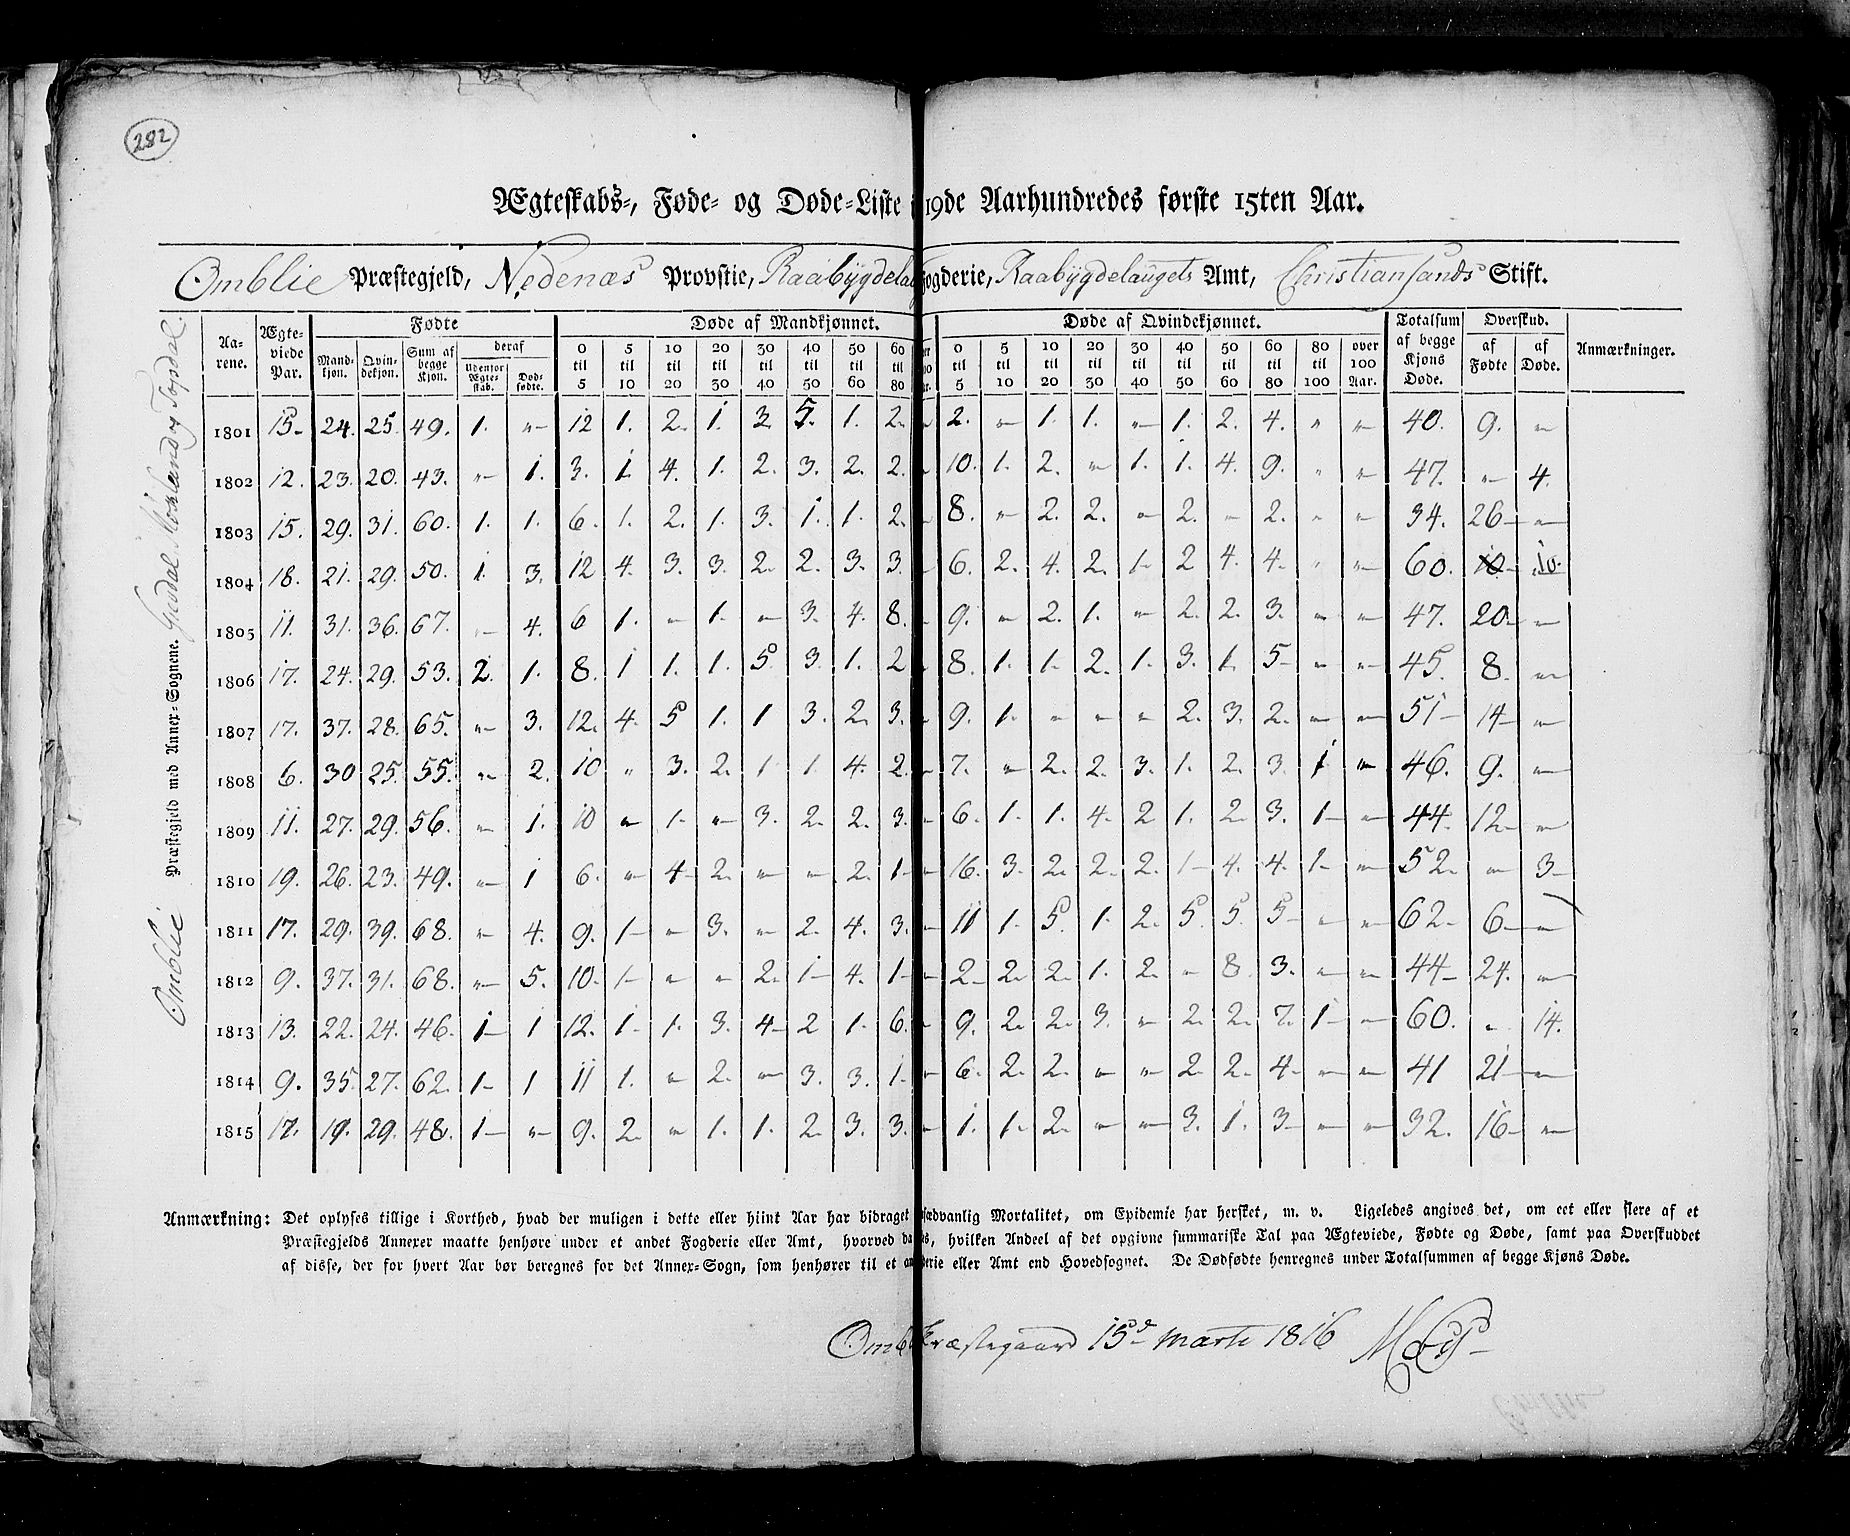 282
Ægteskabs-, Føde- og Døde-Liste i 19de Aarhundredes første 15ten Aar.
Omblie Præstegjeld, Nedenæs Provstie, Raabÿgdelau Fogderie, Raabÿgdelaugets Amt, Christiansands Stift.
Omblie Præstegjeld med Annex-Sognene. Giøvdal Mosland og Topdal.
Aarene. Ægteviede Par. Fødte Døde af Mandkjønnet. Døde af Qvindekjønnet. Totalsum af begge Kjøns Døde. Overskud. Anmærkninger.
Mandkjøn. Qvindekjøn. Sum af begge Kjøn. deraf Udenfor Ægteskab. Dødfødte. 0 til 5 5 til 10 10 til 20 20 til 30 30 til 40 40 til 50 50 til 60 60 til 80 0 til 5 5 til 10 10 til 20 20 til 30 30 til 40 40 til 50 50 til 60 60 til 80 80 til 100 over 100 Aar. af Fødte af Døde.
1801 15- 24. 25. 49. 1. „ 12 1. 2. 1. 3 5. 1. 2. „ 2. „ 1. 1. „ 1. 2. 4. „ „ 40. 9. „
1802 12. 23. 20. 43. „ 1. 3. 1 4. 1. 2. 3. 2. 2. „ 10. 1. 2. „ 1. 1. 4. 9. „ „ 47. „ 4.
1803 15. 29. 31. 60. 1. 1. 6. 1. 2. 1. 3. 1. 1. 2. „ 8. „ 2. 2. „ 2. „ 2. „ „ 34. 26- „
1804 18. 21. 29. 50. 1. 3. 12 4. 3. 3. 2. 2. 3. 3. „ 6. 2. 4. 2. 1- 2 4. 4. „ „ 60. 10 10.
1805 11. 31. 36. 67. „ 4. 6 1. „ 1. „ 3. 4. 8. „ 9. „ 2. 1. „ 2. 2. 3. „ „ 47. 20- „
1806 17. 24. 29. 53. 2. 1. 8. 1 1. 1. 5. 3. 1. 2 „ 8. 1. 1. 2. 1. 3. 1. 5- „ „ 45. 8. „
1807 17. 37. 28. 65. „ 3. 12. 4. 5 1. 1 3. 2. 3. „ 9. 1. „ „ „ 2. 3. 2. „ „ 51- 14- „
1808 6. 30 25. 55. „ 2. 10 „ 3. 2. 1 1. 4. 2. „ 7. „ 2. 2. 3. 1. 2. 3. 1 „ 46. 9. „
1809 11. 27. 29. 56. „ 1. 10 „ 1. „ 3. 2. 2. 3. „ 6. 1. 1. 4. 2 1. 2. 3. 1- „ 44. 12- „
1810 19. 26. 23. 49. „ 1 6. „ 4- 2. „ „ 2. 1- „ 16. 3. 2. 2. 2. 1- 4. 4. 1- „ 52. „ 3-
1811 17. 29. 39. 68. „ 4. 9. 1- „ 3. „ 2. 4. 3. „ 11 1. 5. 1. 2. 5. 5. 5- „ „ 62- 6- „
1812 9. 37. 31. 68. „ 5. 10. 1- „ „ 2. 1- 4. 1- „ 2- 2. 2. 1. 2. „ 8 3. „ „ 44- 24. „
1813 13. 22. 24. 46. 1- 1 12. 1- 1. 3. 4- 2 1. 6. „ 9. 2. 2. 3. „ 2. 2. 7. 1- „ 60. „ 14.
1814 9. 35. 27. 62. 1- 1 11 1. „ 2. „ 3. 3. 1- „ 6. 2. 2. „ „ 2. 2. 4- „ „ 41 21- „
1815 17. 19. 29. 48. 1- „ 9. 2. „ 1. 1. 2. 3. 3. „ 1. 1- 2. „ „ 3. 1. 3- „ „ 32. 16- „
Anmærkning: Det oplyses tillige i Korthed, hvad der muligen i dette eller hiint Aar har bidraget sædvanlig Mortalitet, om Epidemie har hersket, m. v. Ligeledes angives det, om eet eller flere af et
Præstegjelds Annexer maatte henhøre under et andet Fogderie eller Amt, hvorved da s, hvilken Andeel af det opgivne summariske Tal paa Ægteviede, Fødte og Døde, samt paa Overskuddet
af disse, der for hvert Aar bør beregnes for det Annex-Sogn, som henhører til et an derie eller Amt end Hovedsognet. De Dødfødte henregnes under Totalsummen af begge Kjøns Døde.
Ombl Præstegaard 15d Marti 1816